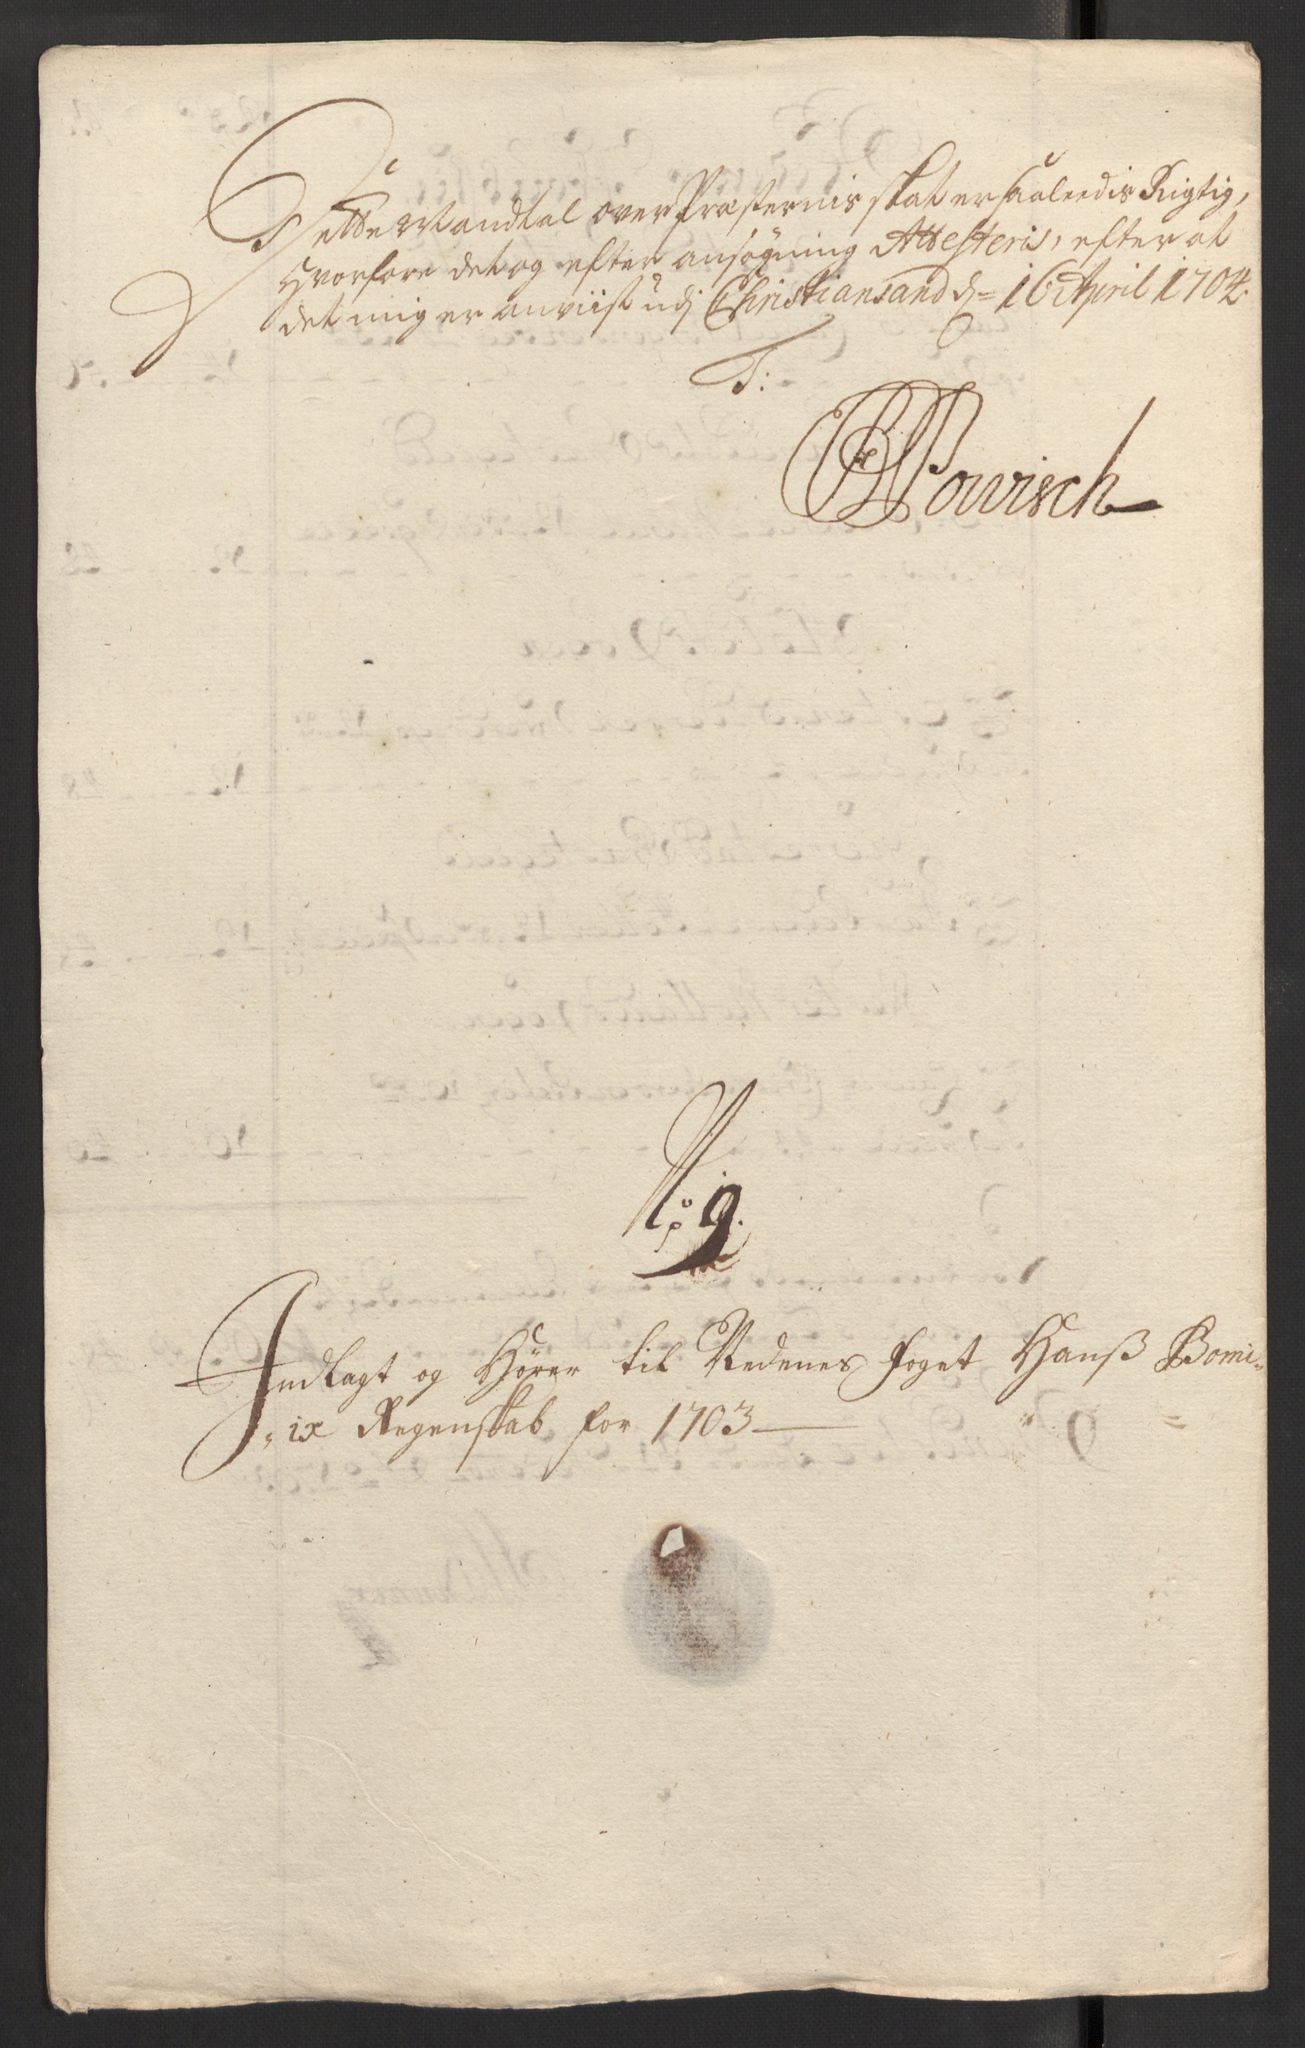 Dette Mandtal over Præsternis skat er saaleedis Rigtig,
Hvorfore det og efter ansøgning Attesteris, efter at
det mig er anviist udj Christiansand d= 16 April 1704.
T:
Powisch
No 9.
Indlagt og Hører til Nedenes foget Hanß Bomi-
-ix Regenskab for 1703